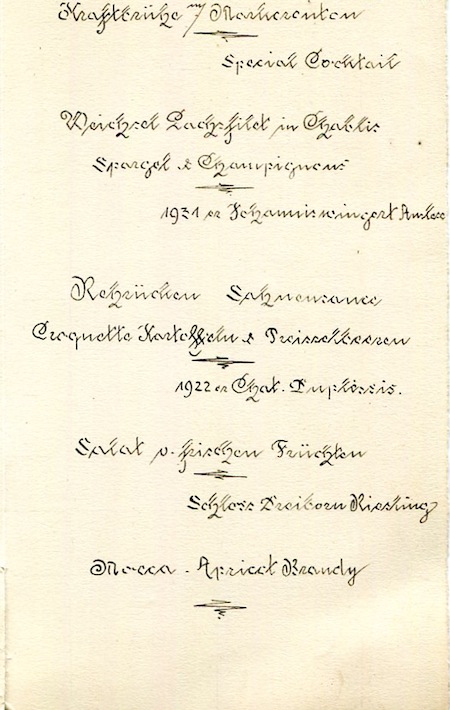 Kraftbrühe m/ Markcroûton
Special Cocktail
Weichsel Lachsfilet in Chablis
Spargel & Champignons
1931 er Johanniswingert Auslese
Rehrücken Sahnensauce
Croquette Kartoffeln & Preisselbeeren
1922 er Chat. Duplessis.
Salat v. frischen Früchten
Schloss Dreiborn Riesling
Mocca - Apricot Brandy